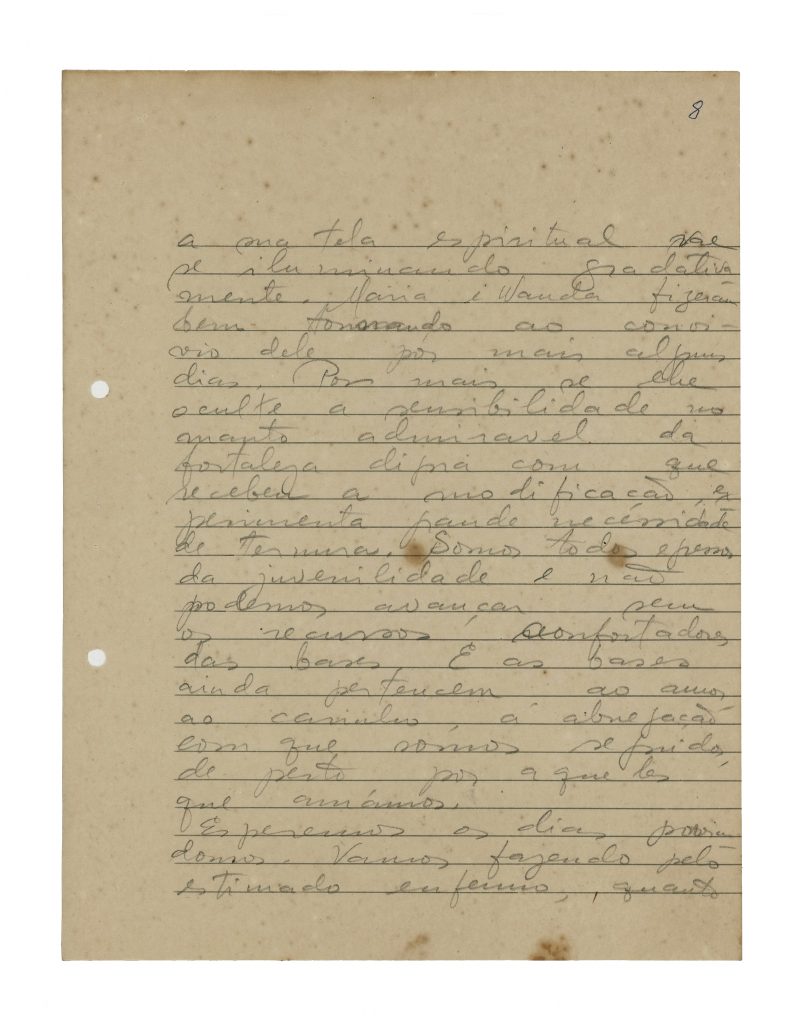 8
a sua tela espiritual vae
se iluminando gradativa
mente. Maria e Wanda fizeram
bem tornando ao conví-
vio dele por mais alguns
dias. Por mais se lhe
oculte a sensibilidade no
manto admiravel da
fortaleza digna com que
recebeu a modificação, ex
perimenta grande necéssidade
de ternura. Somos todos egressos
da juvenilidade e não
podemos avançar sem
os recursos confortadores
das bases. E as bases
ainda pertencem ao amor,
ao carinho, á abnegação
com que somos seguidos,
de perto por aqueles
que amámos.
Esperemos os dias
douros. Vamos fazendo pelo
estimado enfermo, quanto